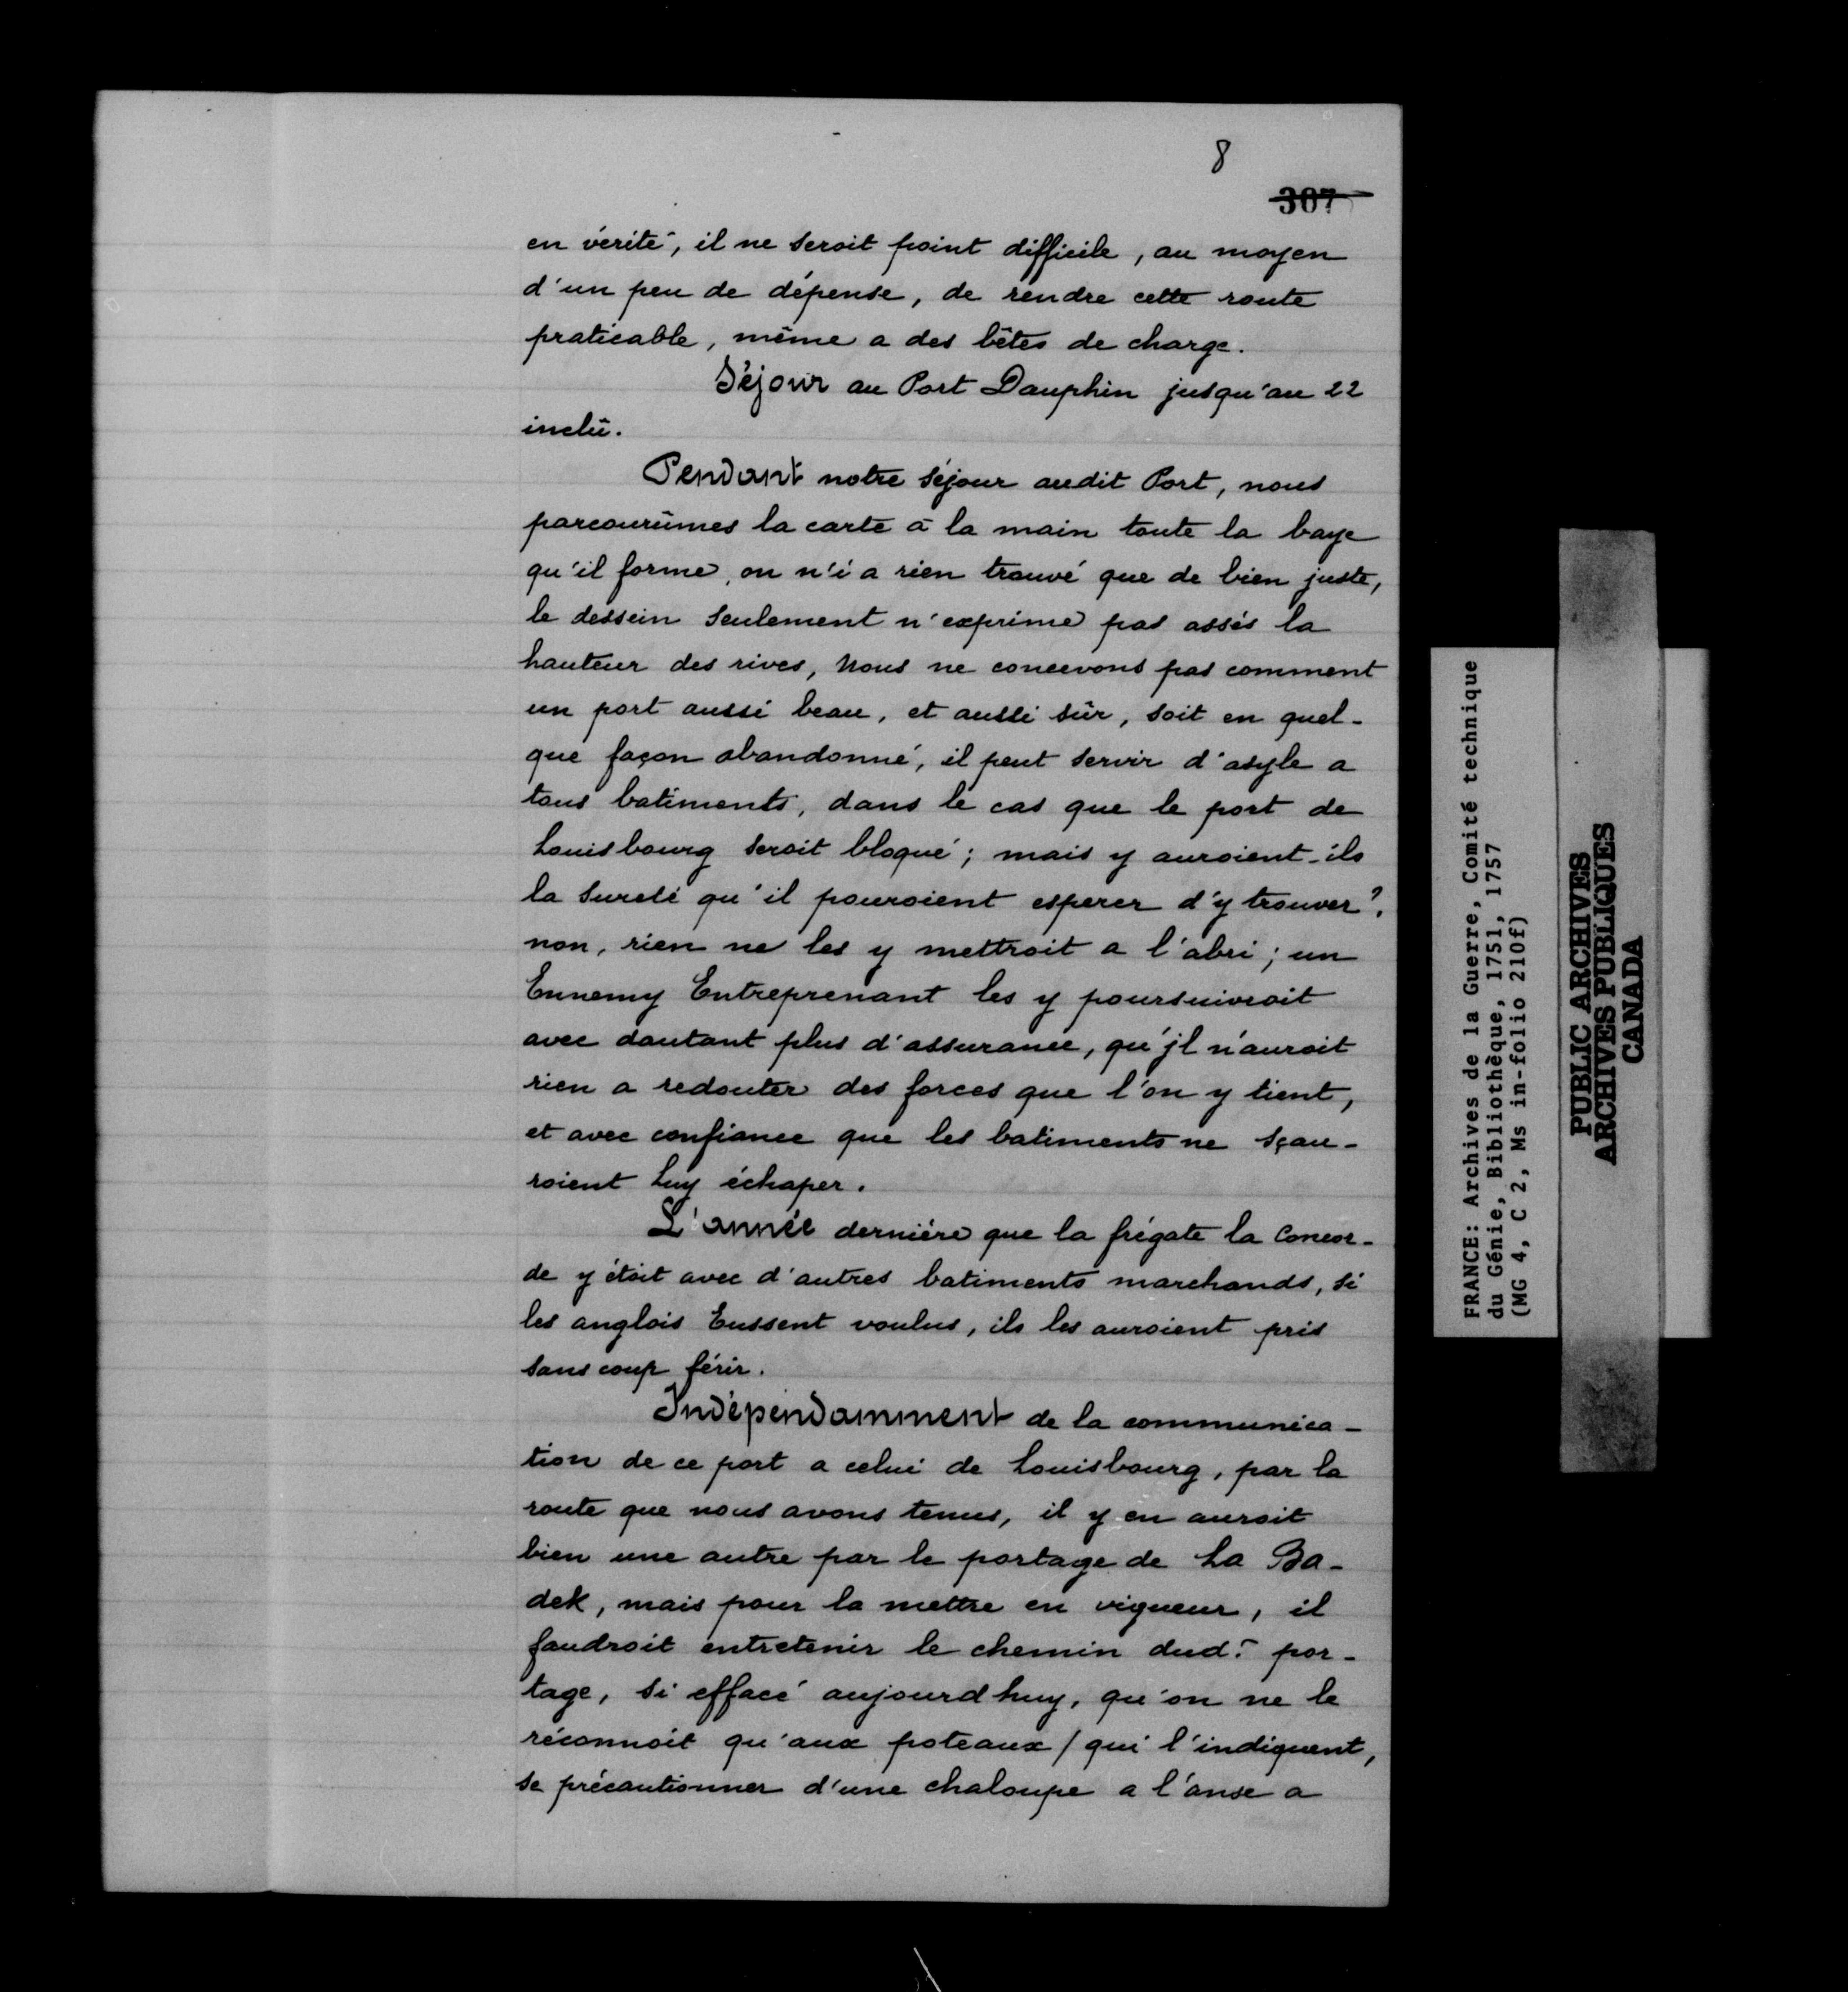 8
307
en vérité, il ne seroit point difficile, au moyen
d'un peu de dépense, de rendre cette route
praticable, même a des bêtes de charge.
Séjour au Port Dauphin jusqu'au 22
inclû.
Pendant notre séjour audit Port, nous
parcourûmes la carte à la main toute la baye
qu'il forme, on n'i a rien trouvé que de bien juste,
le dessein seulement n'exprime pas assés la
hauteur des rives, Nous ne concevons pas comment
un port aussi beau, et aussi sûr, soit en quel-
que façon abandonné, il peut servir d'asyle a
tous batiments, dans le cas que le port de
Louisbourg seroit bloqué; mais y auroient-ils
la sureté qu'il pouroient esperer d'y trouver?,
non, rien ne les y mettroit a l'abri; un
Ennemy Entreprenant les y poursuivroit
avec dautant plus d'assurance, qu'jl n'auroit
rien a redouter des forces que l'on y tient,
et avec confiance que les batiments ne sçau-
roient Luy échaper.
L'année derniére que la frégate la Concor-
de y étoit avec d'autres batiments marchands, si
les anglois Eussent voulus, ils les auroient pris
sans coup férir.
Indépendamment de la communica-
tion de ce port a celui de Louisbourg, par la
route que nous avons tenus, il y en auroit
bien une autre par le portage de La Ba-
dek, mais pour la mettre en vigueur, il
faudroit entretenir le chemin dud. por-
tage, si effacé aujourdhuy, qu'on ne le
réconnoit qu'aux poteaux / qui l'indiquent,
se précautionner d'une chaloupe a l'anse a
FRANCE: Archives de la Guerre, Comité technique
du Génie, Bibliothèque, 1751, 1757
(MG 4, C 2, Ms in-folio 210f)
PUBLIC ARCHIVES
ARCHIVES PUBLIQUES
CANADA